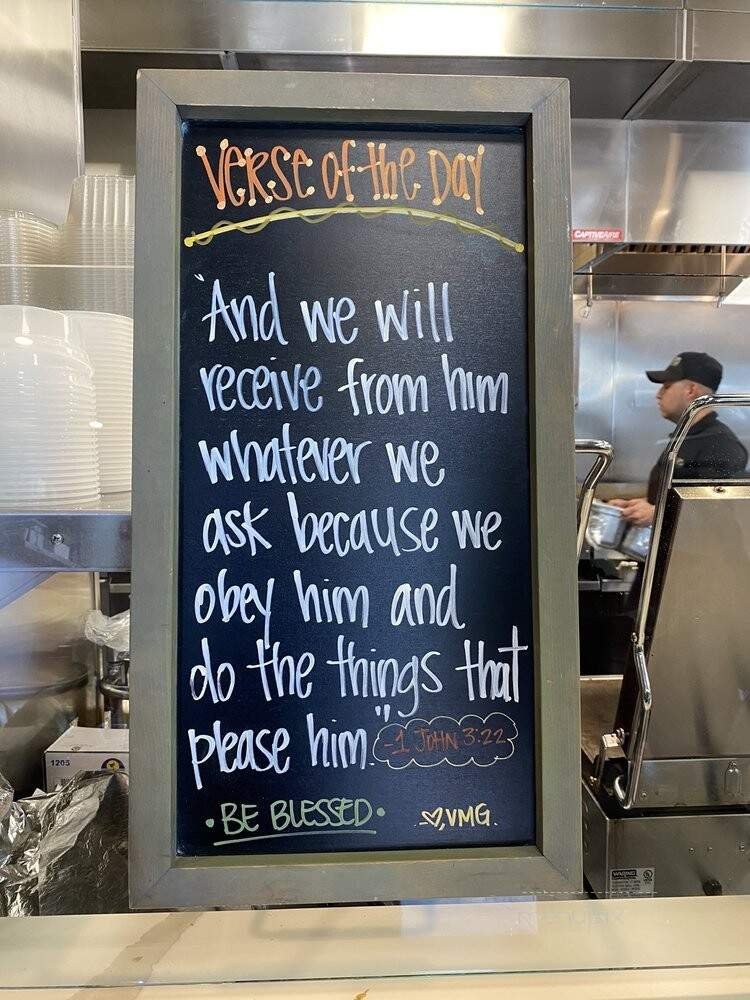 VERSE OF the DAY
"And we will
receive from him
whatever we
ask because we
obey him and
do the things that
please him."
-1 JOHN 3:22
• BE BLESSED •
-♡, VMG.
CAPTIVEAIRE
1205
WARNING